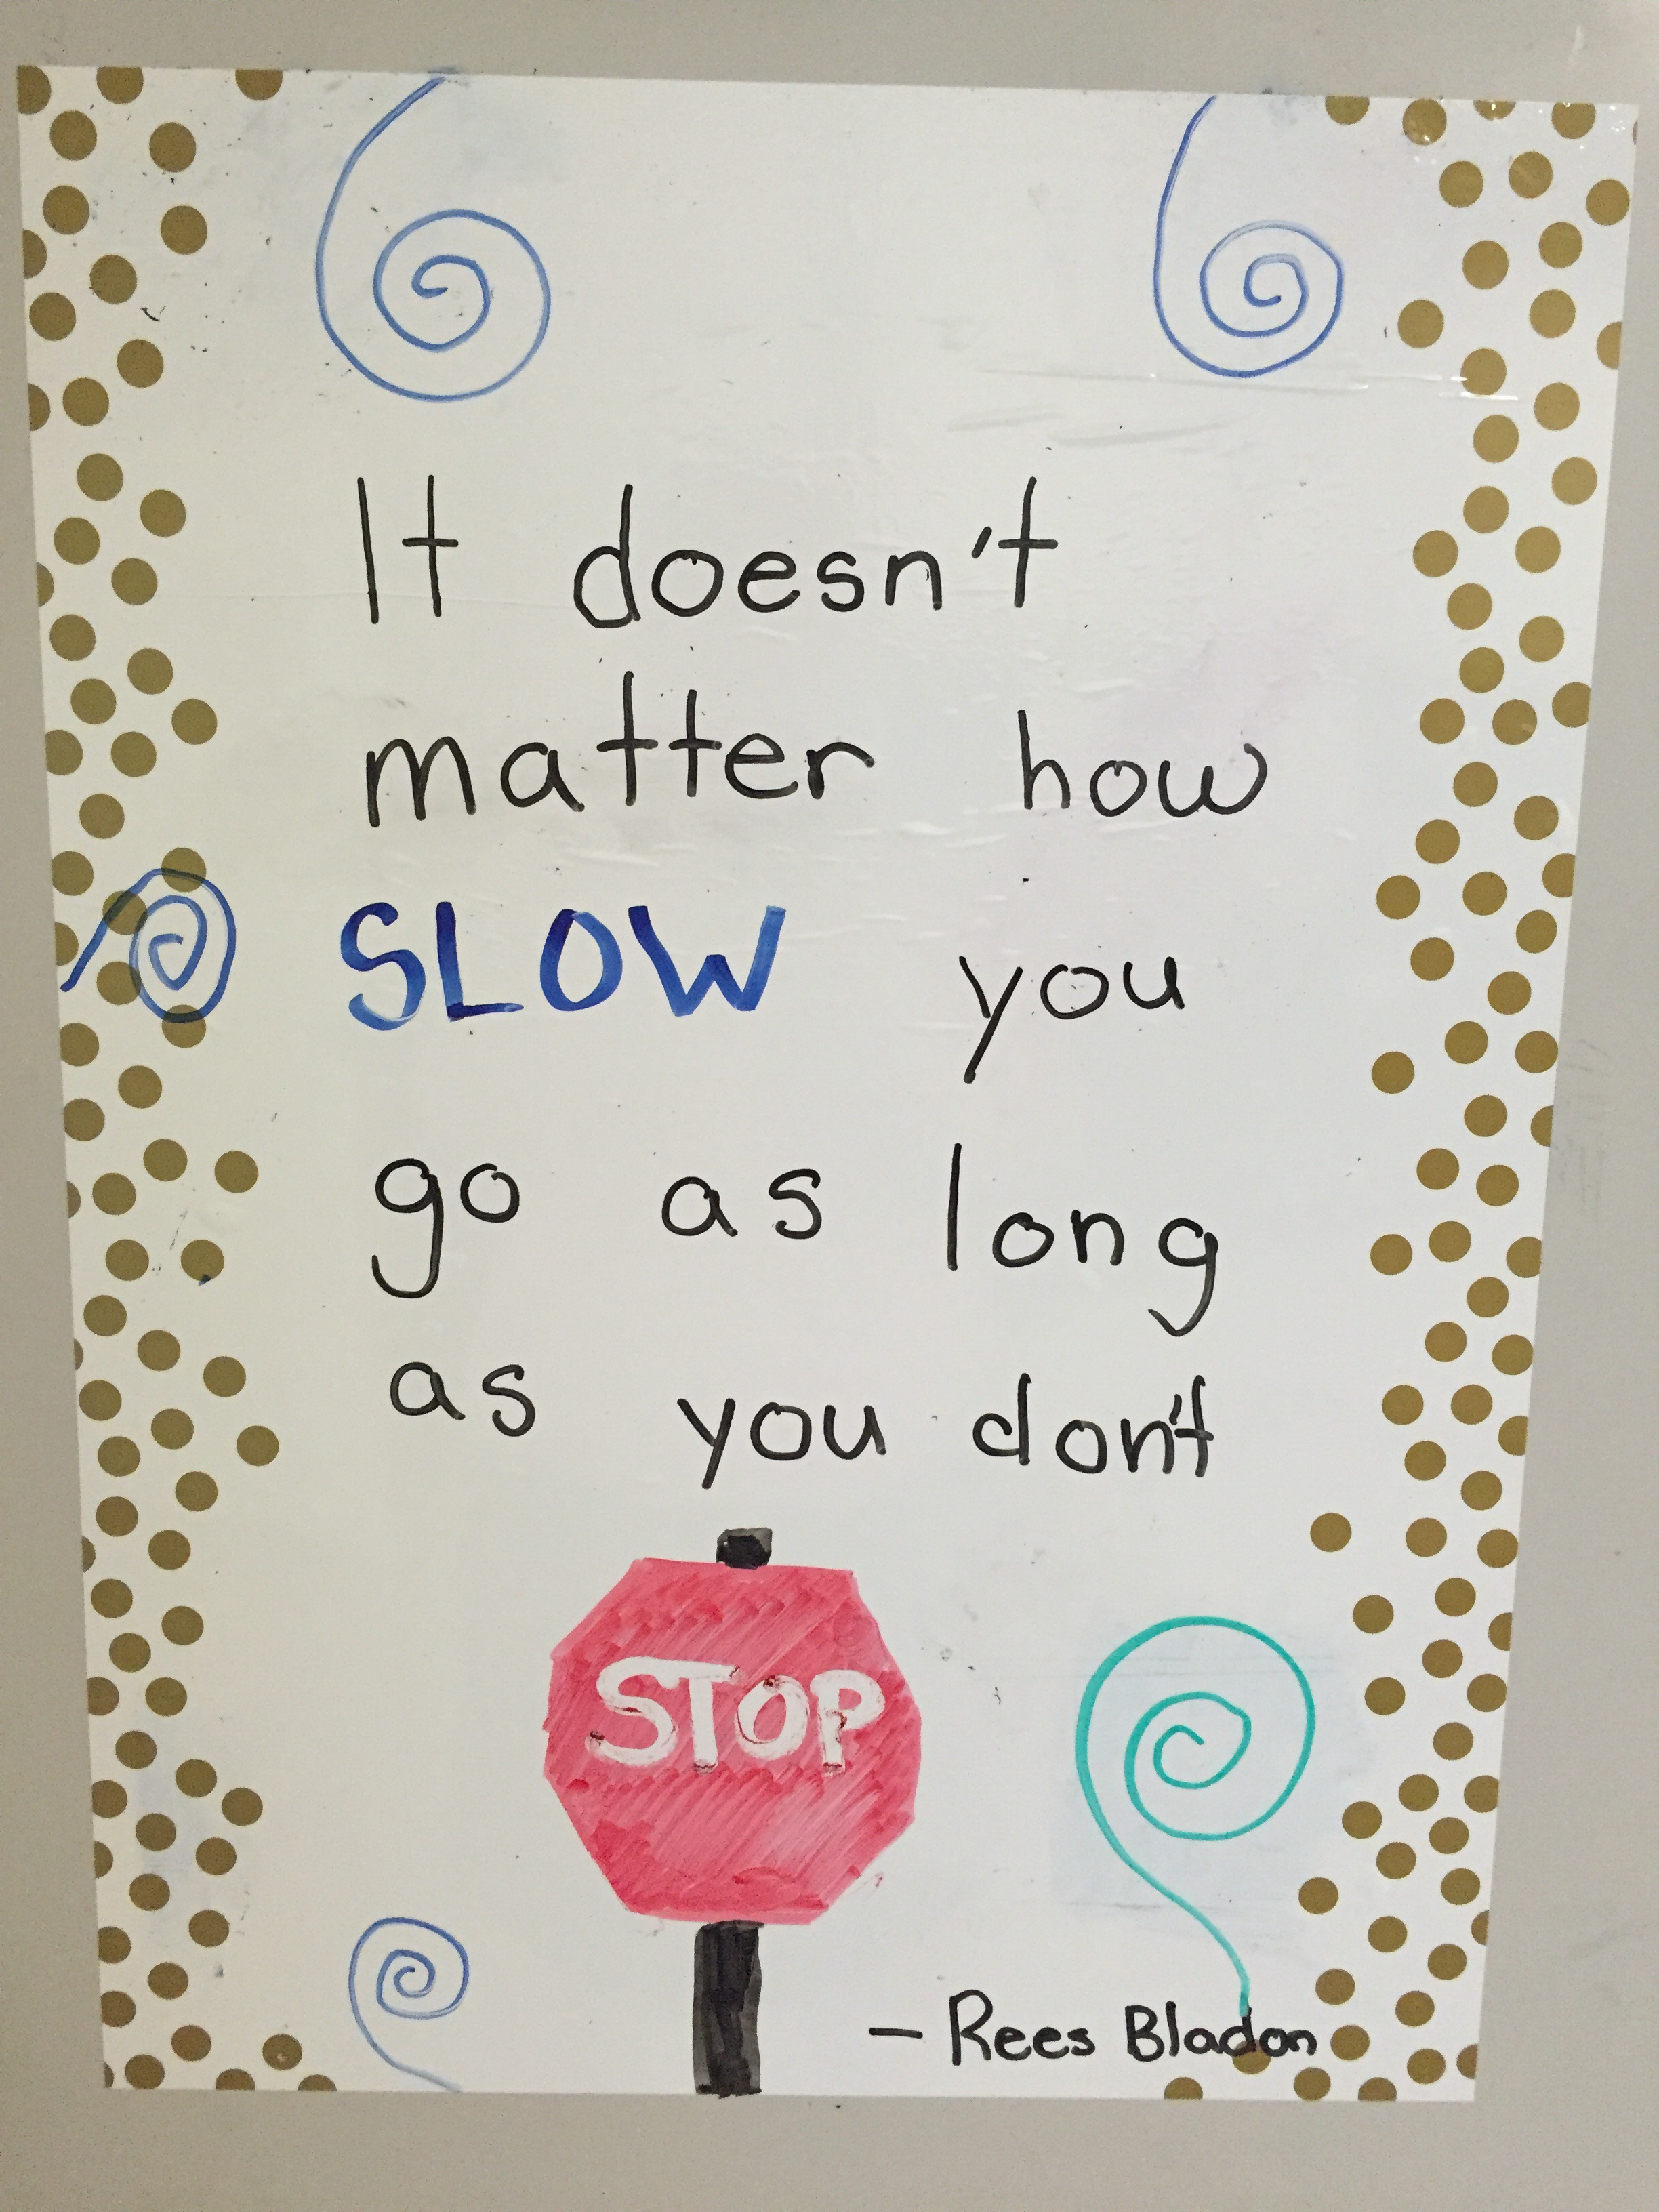 It doesn't
matter how
SLOW you
go as long
as you don't
STOP
- Rees Bladon